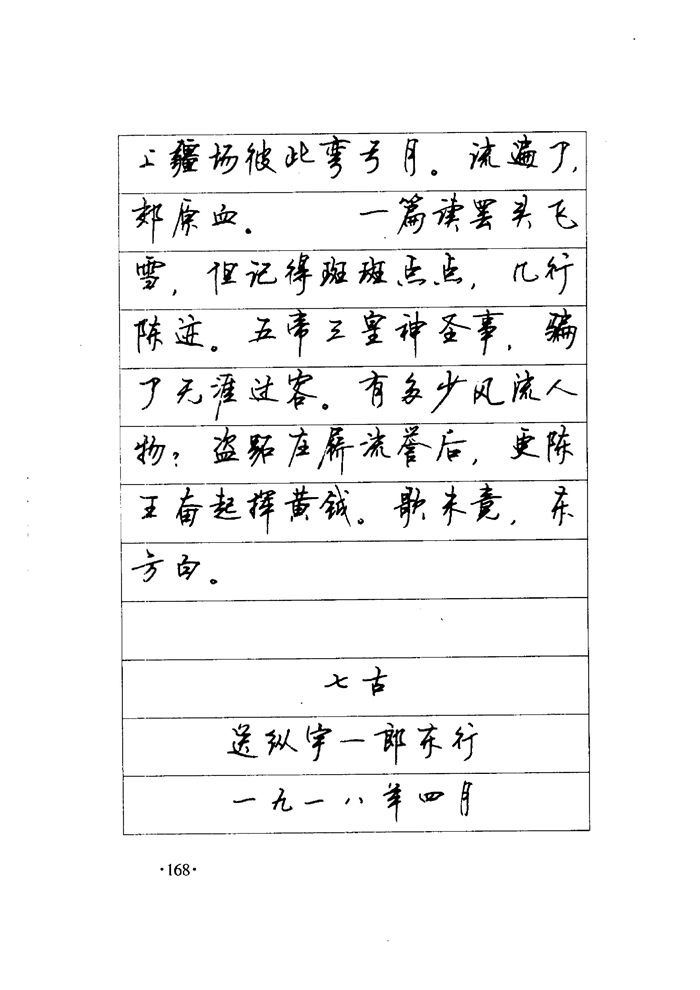 上疆场彼此弯弓月。流遍了，
郊原血。　　一篇读罢头飞
雪，但记得斑斑点点，几行
陈迹。五帝三皇神圣事，骗
了无涯过客。有多少风流人
物？盗跖庄𫏋流誉后，更陈
王奋起挥黄钺。歌未竟，东
方白。
七古
送纵宇一郎东行
一九一八年四月
·168·